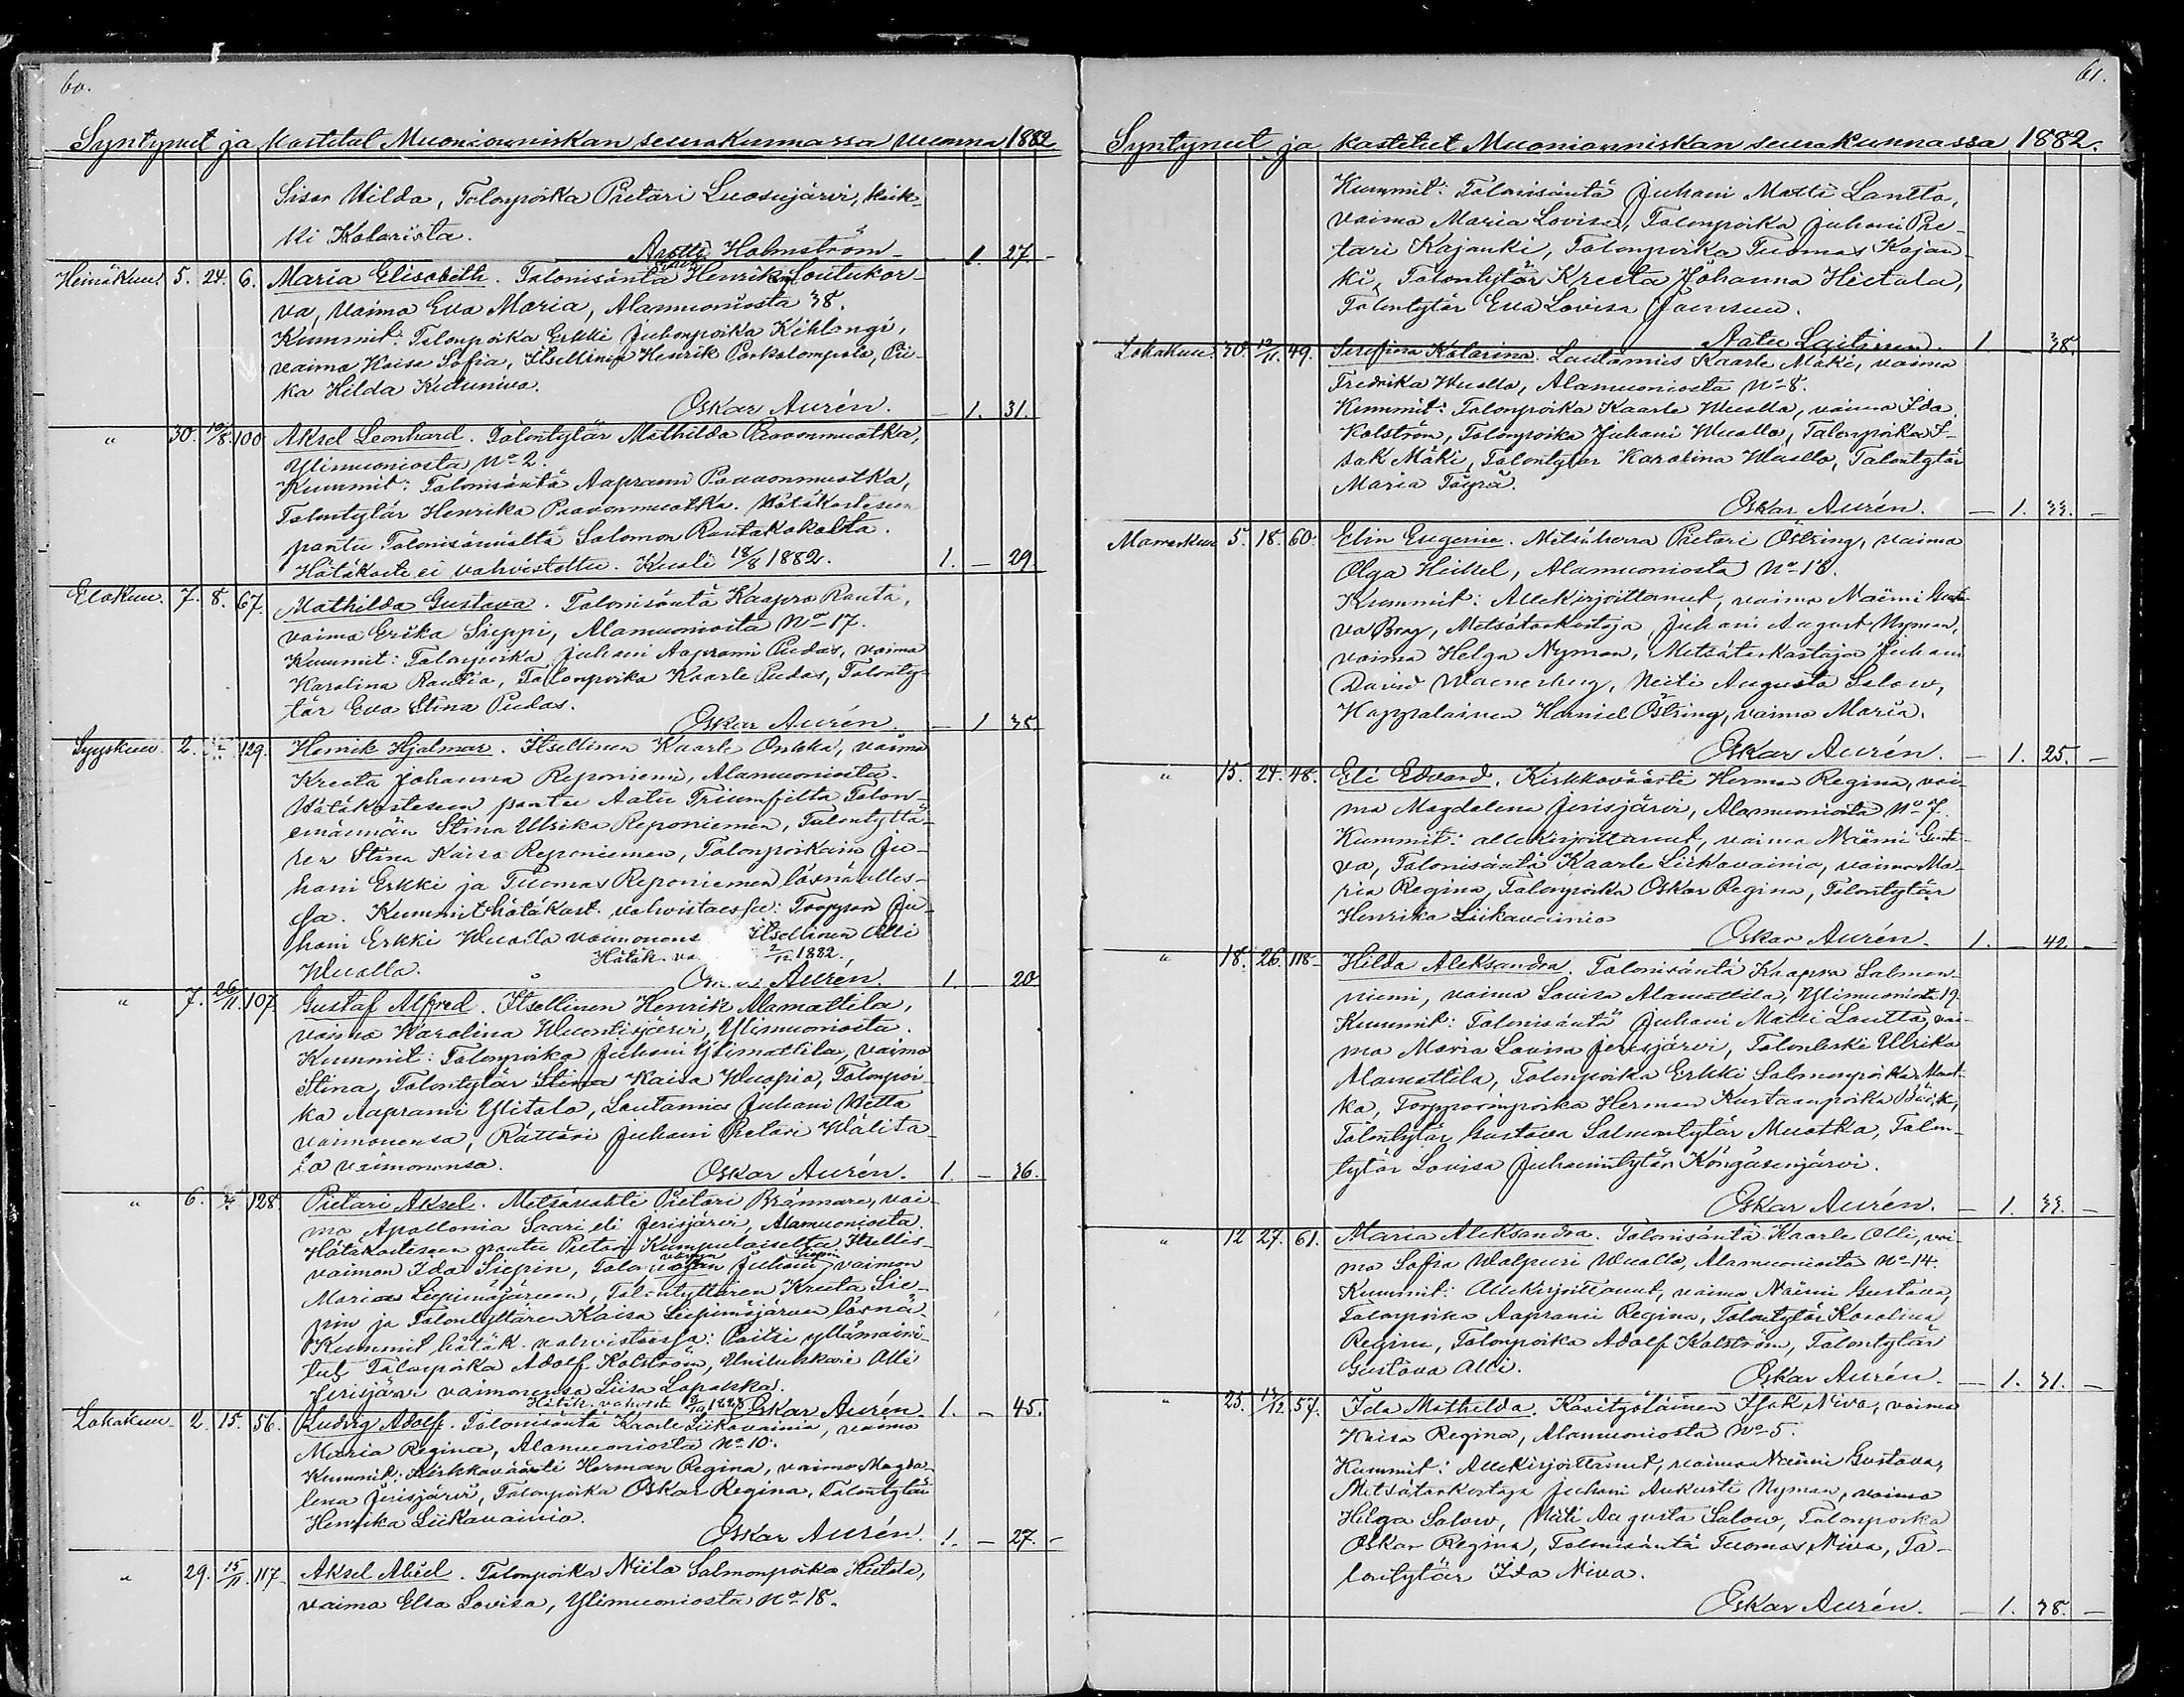 60.
Syntynet ja kastetut Muonionniskan seurakunnassa vuonna 1882
Sisar Hilda, Talonpoika Pietari Luosujärvi, kaik-
ki Kolarista.
Antti Holmström 1. 27.
Heinäkuu. 5. 24. 6. Maria Elisabeth. Talonisäntä Henrik Loukukor-
va, vaimo Eva Maria, Alamuoniosta 38.
Kummit: Talonpoika Erkki Juhonpoika Kihlangi,
vaimo Kaisa Sofia, Itsellinen Henrik Parkalompolo, Pii-
ka Hilda Kutuniva.
Oskar Aurén. — 1. 31.
" 30. 10/8. 100 Aksel Leonhard. Talontytär Mathilda Paavonmuotka,
Ylimuoniosta No 2.
Kummit: Talonisäntä Aaprami Paavonmuotka,
Talontytär Henrika Paavonmuotka. Hätäkasteseen
pantu Talonisännältä Salomon Rautakokolta.
Hätäkaste ei vahvistettu. Kuoli 18/8 1882. 1. — 29
Elokuu. 7. 8. 67. Mathilda Gustava. Talonisäntä Kaapro Rauta,
vaimo Erika Sieppi, Alamuoniosta No 17.
Kummit: Talonpoika Juhani Aaprami Pudas, vaimo
Karolina Rautio, Talonpoika Kaarle Pudas, Talonty-
tär Eva Stina Pudas.
Oskar Aurén. — 1 35
Syyskuu. 2. 129. Henrik Hjalmar. Itsellinen Kaarle Onkka, vaimo
Kreeta Johanna Reponiemi, Alamuoniosta.
Hätäkasteseen pantu Aatu Triumfilta Talon-
emännän Stina Ulrika Reponiemen, Talontyttä-
ren Stina Kaisa Reponiemen, Talonpoikain Ju-
hani Erkki ja Tuomas Reponiemen läsnäolles-
sa. Kummit hätäkast. vahvistaessa: Torppari Ju-
hani Erkki Wuollo vaimonens Itsellinen Olli
Wuollo. Hätäk. va 2/12 1882.
Aurén. 1. — 20
" 7. 26/11. 107. Gustaf Alfred. Itsellinen Henrik Alamattila,
vaimo Karolina Wuontisjärvi, Ylimuoniosta.
Kummit: Talonpoika Juhani Ylimattila, vaimo
Stina, Talontytär Stina Kaisa Wuopio, Talonpoi-
ka Aaprami Ylitalo, Lautamies Juhani Wetta
vaimonensa, Rättäri Juhani Pietari Wälita-
lo vaimonensa.
Oskar Aurén. 1. — 36.
" 6. 128. Pietari Aksel. Metsävahti Pietari Brännare, vai-
mo Apollonia Saari eli Jerisjärvi, Alamuoniosta.
Hätäkasteseen pantu Pietari Kumpulaiselta, Itsellis-
vaimon Ida Siepin, Talonvaarin Juhani Siepin vaimon
Marian Liepimäjärven, Talontyttären Kreeta Sie-
pin ja Talontyttären Kaisa Liepimäjärven läsnä.
Kummit hätäk. vahvistaissa: Paitsi yllämaini-
tut Talonpoika Adolf Kolström, Unilukkari Olli
Jerisjärvi vaimonensa Liisa Lapakka.
Oskar Aurén. 1. — 45.
Lokakuu. 2. 15. 56. Ludvig Adolf. Talonisäntä Kaarle Liikavainio, vaimo
Maria Regina, Alamuoniosta No 10.
Kummit: Kirkkoväärti Herman Regina, vaimo Magda-
lena Jerisjärvi, Talonpoika Oskar Regina, Talontytär
Henrika Liikavainio.
Oskar Aurén. 1. — 27.
" 29. 15/11. 117. Aksel Abiel. Talonpoika Niila Salmonpoika Hietala,
vaimo Elsa Lovisa, Ylimuoniosta No 18.
61.
Syntynet ja kastetut Muonionniskan seurakunnassa 1882.
Kummit: Talonisäntä Juhani Matti Lantto,
vaimo Maria Lovisa, Talonpoika Juhani Pie-
tari Kajanki, Talonpoika Tuomas Kajan-
ki, Talontytär Kreeta Johanna Hietala,
Talontytär Eva Lovisa Joensuu.
Aatu Laitinen. 1 — 38.
Lokakuu. 30. 12/11. 49. Serafina Katarina. Lautamies Kaarle Mäki, vaimo
Fredrika Wuollo, Alamuoniosta No 8.
Kummit: Talonpoika Kaarle Wuollo, vaimo Ida
Kolström, Talonpoika Juhani Wuollo, Talonpoika I-
sak Mäki, Talontytär Karolina Wuollo, Talontytär
Maria Töyrä.
Oskar Aurén. — 1. 33. —
Marraskuu 5. 18. 60. Elin Eugenie. Metsäherra Pietari Östring, vaimo
Olga Heikel, Alamuoniosta No 18.
Kummit: Allekirjoittanut, vaimo Naëmi Gusta-
va Borg, Metsätarkastaja Juhani August Nyman,
vaimo Helga Nyman, Metsätarkastaja Juhani
David Waenerberg, Neiti Augusta Salow,
Kappalainen Harniel Östring, vaimo Maria.
Oskar Aurén. — 1. 25. —
" 15. 24. 48. Eli Edvard. Kirkkoväärti Herman Regina, vai-
mo Magdalena Jerisjärvi, Alamuoniosta No 7.
Kummit: allekirjoittanut, vaimo Näëmi Gusta-
va, Talonisäntä Kaarle Liikavainio, vaimo Ma-
ria Regina, Talonpoika Oskar Regina, Talontytär
Henrika Liikavainio
Oskar Aurén. 1. — 42 —
" 18. 26. 118. Hilda Aleksandra. Talonisäntä Kaapra Salmon-
niemi, vaimo Lovisa Alamattila, Ylimuoniosta 19.
Kummit: Talonisäntä Juhani Matti Lantto, vai-
mo Maria Lovisa Jerisjärvi, Talonleski Ulrika
Alamattila, Talonpoika Erkki Salmonpoika Muot-
ka, Torpparinpoika Herman Kustaanpoika Böök,
Talontytär Gustava Salmontytär Muotka, Talon-
tytär Lovisa Juhanintytär Köngäsenjärvi.
Oskar Aurén. — 1. 33. —
" 12 27. 61. Maria Aleksandra. Talonisäntä Kaarle Olli, vai-
mo Sofia Walpuri Wuollo, Alamuoniosta No 14.
Kummit: Allekirjoittanut, vaimo Näëmi Gustava,
Talonpoika Aaprami Regina, Talontytär Karolina
Regina, Talonpoika Adolf Kolström, Talontytär
Gustava Olli.
Oskar Aurén. — 1. 31. —
" 23. 17/12. 57. Ida Mathilda. Käsityöläinen Isak Niva, vaimo
Kaisa Regina, Alamuoniosta No 5.
Kummit: Allekirjoittanut, vaimo Näëmi Gustava,
Metsätarkastaja Juhani Aukusti Nyman, vaimo
Helga Salow, Neiti Augusta Salow, Talonpoika
Oskar Regina, Talonisäntä Tuomas Niva, Ta-
lontytär Ida Niva.
Oskar Aurén. — 1. 38. —